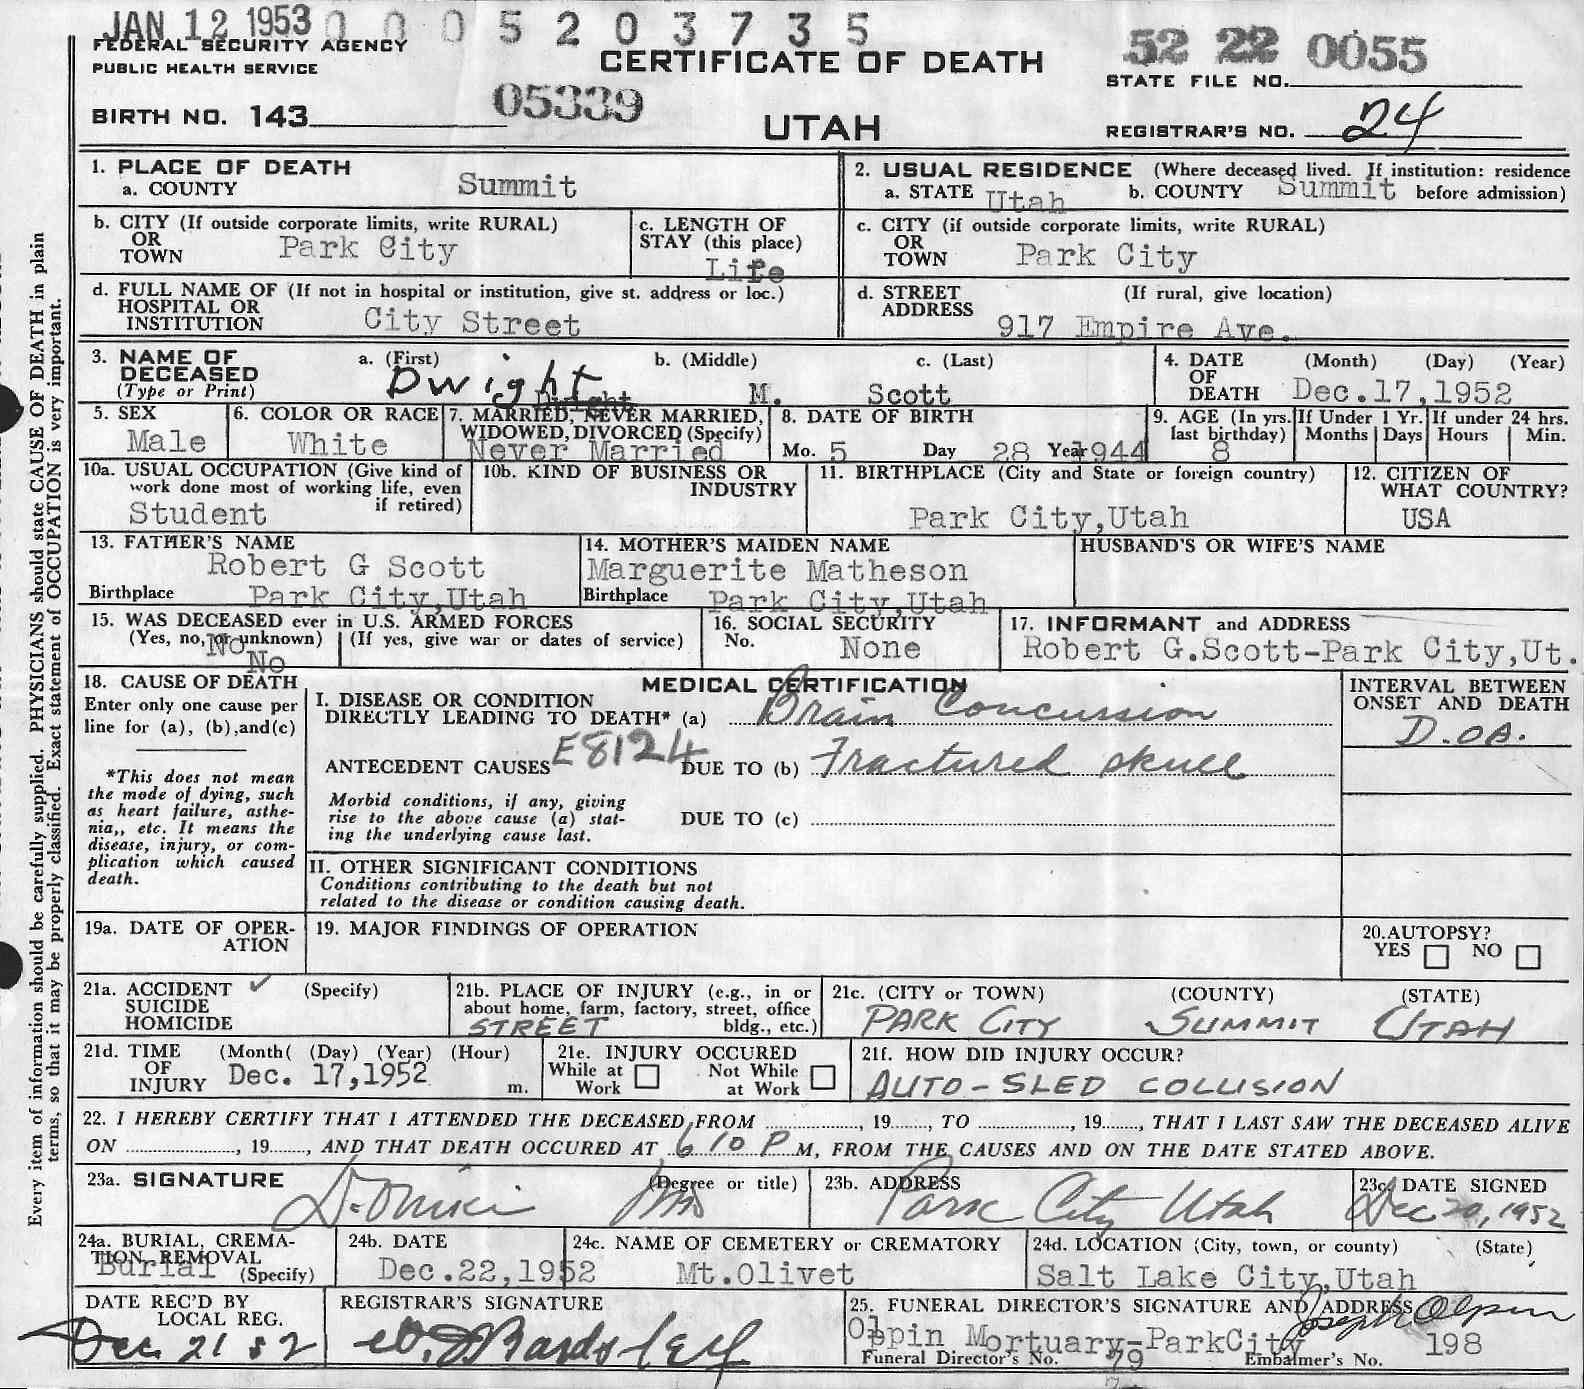 JAN 12 1953 0 0 0 5 2 0 3 7 3 5
FEDERAL SECURITY AGENCY
PUBLIC HEALTH SERVICE
CERTIFICATE OF DEATH
52 22 0055
STATE FILE NO.
BIRTH NO. 143
05339
UTAH
REGISTRAR'S NO. 24
1. PLACE OF DEATH
a. COUNTY Summit
2. USUAL RESIDENCE (Where deceased lived. If institution: residence
a. STATE Utah b. COUNTY Summit before admission)
b. CITY (If outside corporate limits, write RURAL)
OR
TOWN Park City
c. LENGTH OF
STAY (this place)
Life
c. CITY (if outside corporate limits, write RURAL)
OR
TOWN Park City
d. FULL NAME OF (If not in hospital or institution, give st. address or loc.)
HOSPITAL OR
INSTITUTION City Street
d. STREET (If rural, give location)
ADDRESS 917 Empire Ave.
3. NAME OF a. (First) b. (Middle) c. (Last)
DECEASED
(Type or Print) Dwight M. Scott
4. DATE (Month) (Day) (Year)
OF
DEATH Dec.17,1952
5. SEX
Male
6. COLOR OR RACE
White
7. MARRIED, NEVER MARRIED,
WIDOWED, DIVORCED (Specify)
Never Married
8. DATE OF BIRTH
Mo. 5 Day 28 Year 1944
9. AGE (In yrs.
last birthday)
8
If Under 1 Yr.
Months Days
If under 24 hrs.
Hours Min.
10a. USUAL OCCUPATION (Give kind of
work done most of working life, even
if retired)
Student
10b. KIND OF BUSINESS OR
INDUSTRY
11. BIRTHPLACE (City and State or foreign country)
Park City,Utah
12. CITIZEN OF
WHAT COUNTRY?
USA
13. FATHER'S NAME
Robert G Scott
Birthplace Park City,Utah
14. MOTHER'S MAIDEN NAME
Marguerite Matheson
Birthplace Park City,Utah
HUSBAND'S OR WIFE'S NAME
15. WAS DECEASED ever in U.S. ARMED FORCES
(Yes, no, or unknown) (If yes, give war or dates of service)
No
No
16. SOCIAL SECURITY
No. None
17. INFORMANT and ADDRESS
Robert G.Scott-Park City,Ut.
18. CAUSE OF DEATH
Enter only one cause per
line for (a), (b),and(c)
*This does not mean
the mode of dying, such
as heart failure, asthe-
nia,, etc. It means the
disease, injury, or com-
plication which caused
death.
MEDICAL CERTIFICATION
I. DISEASE OR CONDITION
DIRECTLY LEADING TO DEATH* (a) Brain Concussion
E8124
ANTECEDENT CAUSES DUE TO (b) Fractured skull
Morbid conditions, if any, giving
rise to the above cause (a) stat-
ing the underlying cause last.
DUE TO (c)
INTERVAL BETWEEN
ONSET AND DEATH
D.OA.
II. OTHER SIGNIFICANT CONDITIONS
Conditions contributing to the death but not
related to the disease or condition causing death.
19a. DATE OF OPER-
ATION
19. MAJOR FINDINGS OF OPERATION
20.AUTOPSY?
YES NO
21a. ACCIDENT ✓ (Specify)
SUICIDE
HOMICIDE
21b. PLACE OF INJURY (e.g., in or
about home, farm, factory, street, office
bldg., etc.)
STREET
21c. (CITY or TOWN) (COUNTY) (STATE)
PARK CITY SUMMIT UTAH
21d. TIME (Month( (Day) (Year) (Hour)
OF
INJURY Dec. 17,1952 m.
21e. INJURY OCCURED
While at Work
Not While at Work
21f. HOW DID INJURY OCCUR?
AUTO-SLED COLLISION
22. I HEREBY CERTIFY THAT I ATTENDED THE DECEASED FROM ........, 19......, TO ........, 19......, THAT I LAST SAW THE DECEASED ALIVE
ON ........, 19......, AND THAT DEATH OCCURED AT 6 10 P M, FROM THE CAUSES AND ON THE DATE STATED ABOVE.
23a. SIGNATURE (Degree or title)
23b. ADDRESS
Park City Utah
23c. DATE SIGNED
Dec 20, 1952
24a. BURIAL, CREMA-
TION, REMOVAL
(Specify)
Burial
24b. DATE
Dec.22,1952
24c. NAME OF CEMETERY or CREMATORY
Mt.Olivet
24d. LOCATION (City, town, or county) (State)
Salt Lake City,Utah
DATE REC'D BY
LOCAL REG.
Dec 21 52
REGISTRAR'S SIGNATURE
25. FUNERAL DIRECTOR'S SIGNATURE AND ADDRESS
Joseph Olpin
Olpin Mortuary-ParkCity 198
Funeral Director's No. 79 Embalmer's No.
Every item of information should be carefully supplied. PHYSICIANS should state CAUSE OF DEATH in plain
terms, so that it may be properly classified. Exact statement of OCCUPATION is very important.